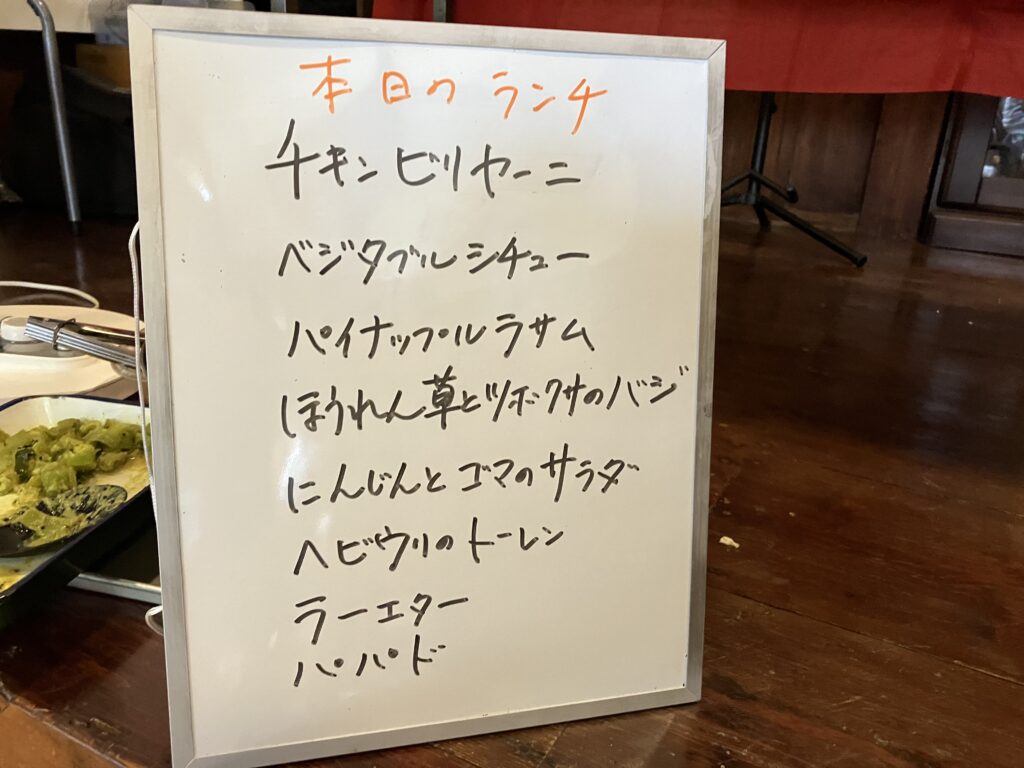 本日のランチ
チキンビリヤーニ
ベジタブルシチュー
パイナップルラサム
ほうれん草とツボクサのバジ
にんじんとゴマのサラダ
ヘビウリのトーレン
ラーエター
パパド